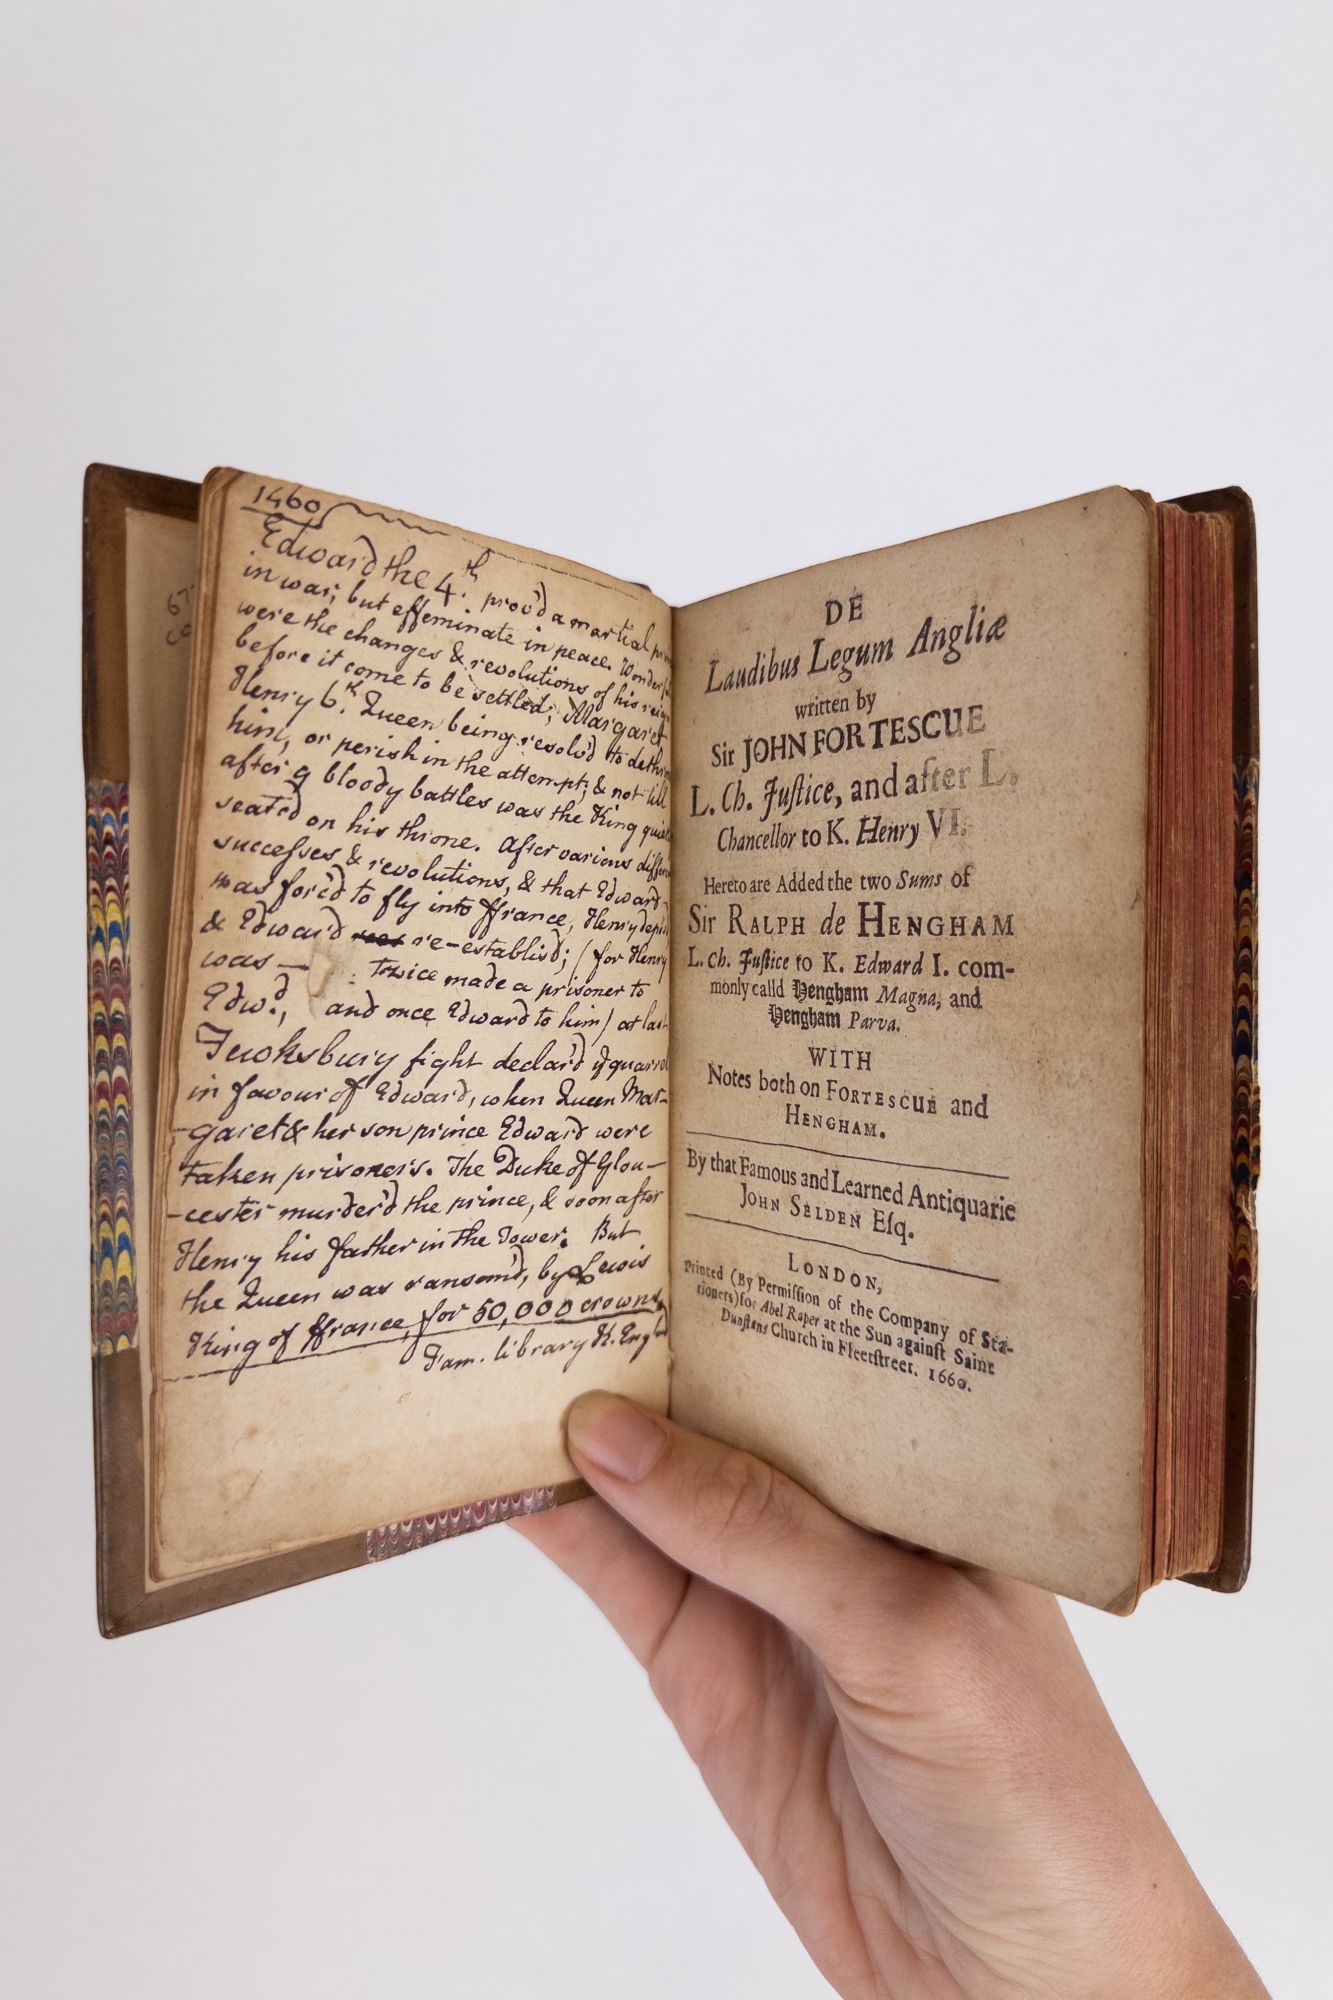 67
1460
Edward the 4th. prov'd a martial
in war; but effeminate in peace. Wonderful
were the changes & revolutions of his reign
before it come to be settled; Margaret
Henry 6th. Queen being resolv'd to
him, or perish in the attempt; & not till
after 9 bloody battles was the King
seated on his throne. After various
successes & revolutions, & that Edward
was forc'd to fly into ffrance, Henry
& Edward re-establisd; (for Henry
was — twice made a prisoner to
Edwd., and once Edward to him) at last
Tewksbury fight declar'd
in favour of Edward, when Queen Mar-
-garet & her son prince Edward were
taken prisoners. The Duke of Glou-
-cester murder'd the prince, & soon after
Henry his father in the Tower. But
the Queen was ransom'd, by Lewis
King of ffrance, for 50,000 crowns,
Fam. library K.
DE
Laudibus Legum Angliæ
written by
Sir JOHN FORTESCUE
L. Ch. Juſtice, and after L.
Chancellor to K. Henry VI.
Hereto are Added the two Sums of
Sir RALPH de HENGHAM
L. Ch. Juſtice to K. Edward I. com-
monly calld Hengham Magna, and
Hengham Parva.
WITH
Notes both on FORTESCUE and
HENGHAM.
By that Famous and Learned Antiquarie
JOHN SELDEN Eſq.
LONDON,
Printed (By Permiſſion of the Company of Sta-
tioners) for Abel Raper at the Sun againſt Saint
Dunſtans Church in Fleetſtreet. 1660.